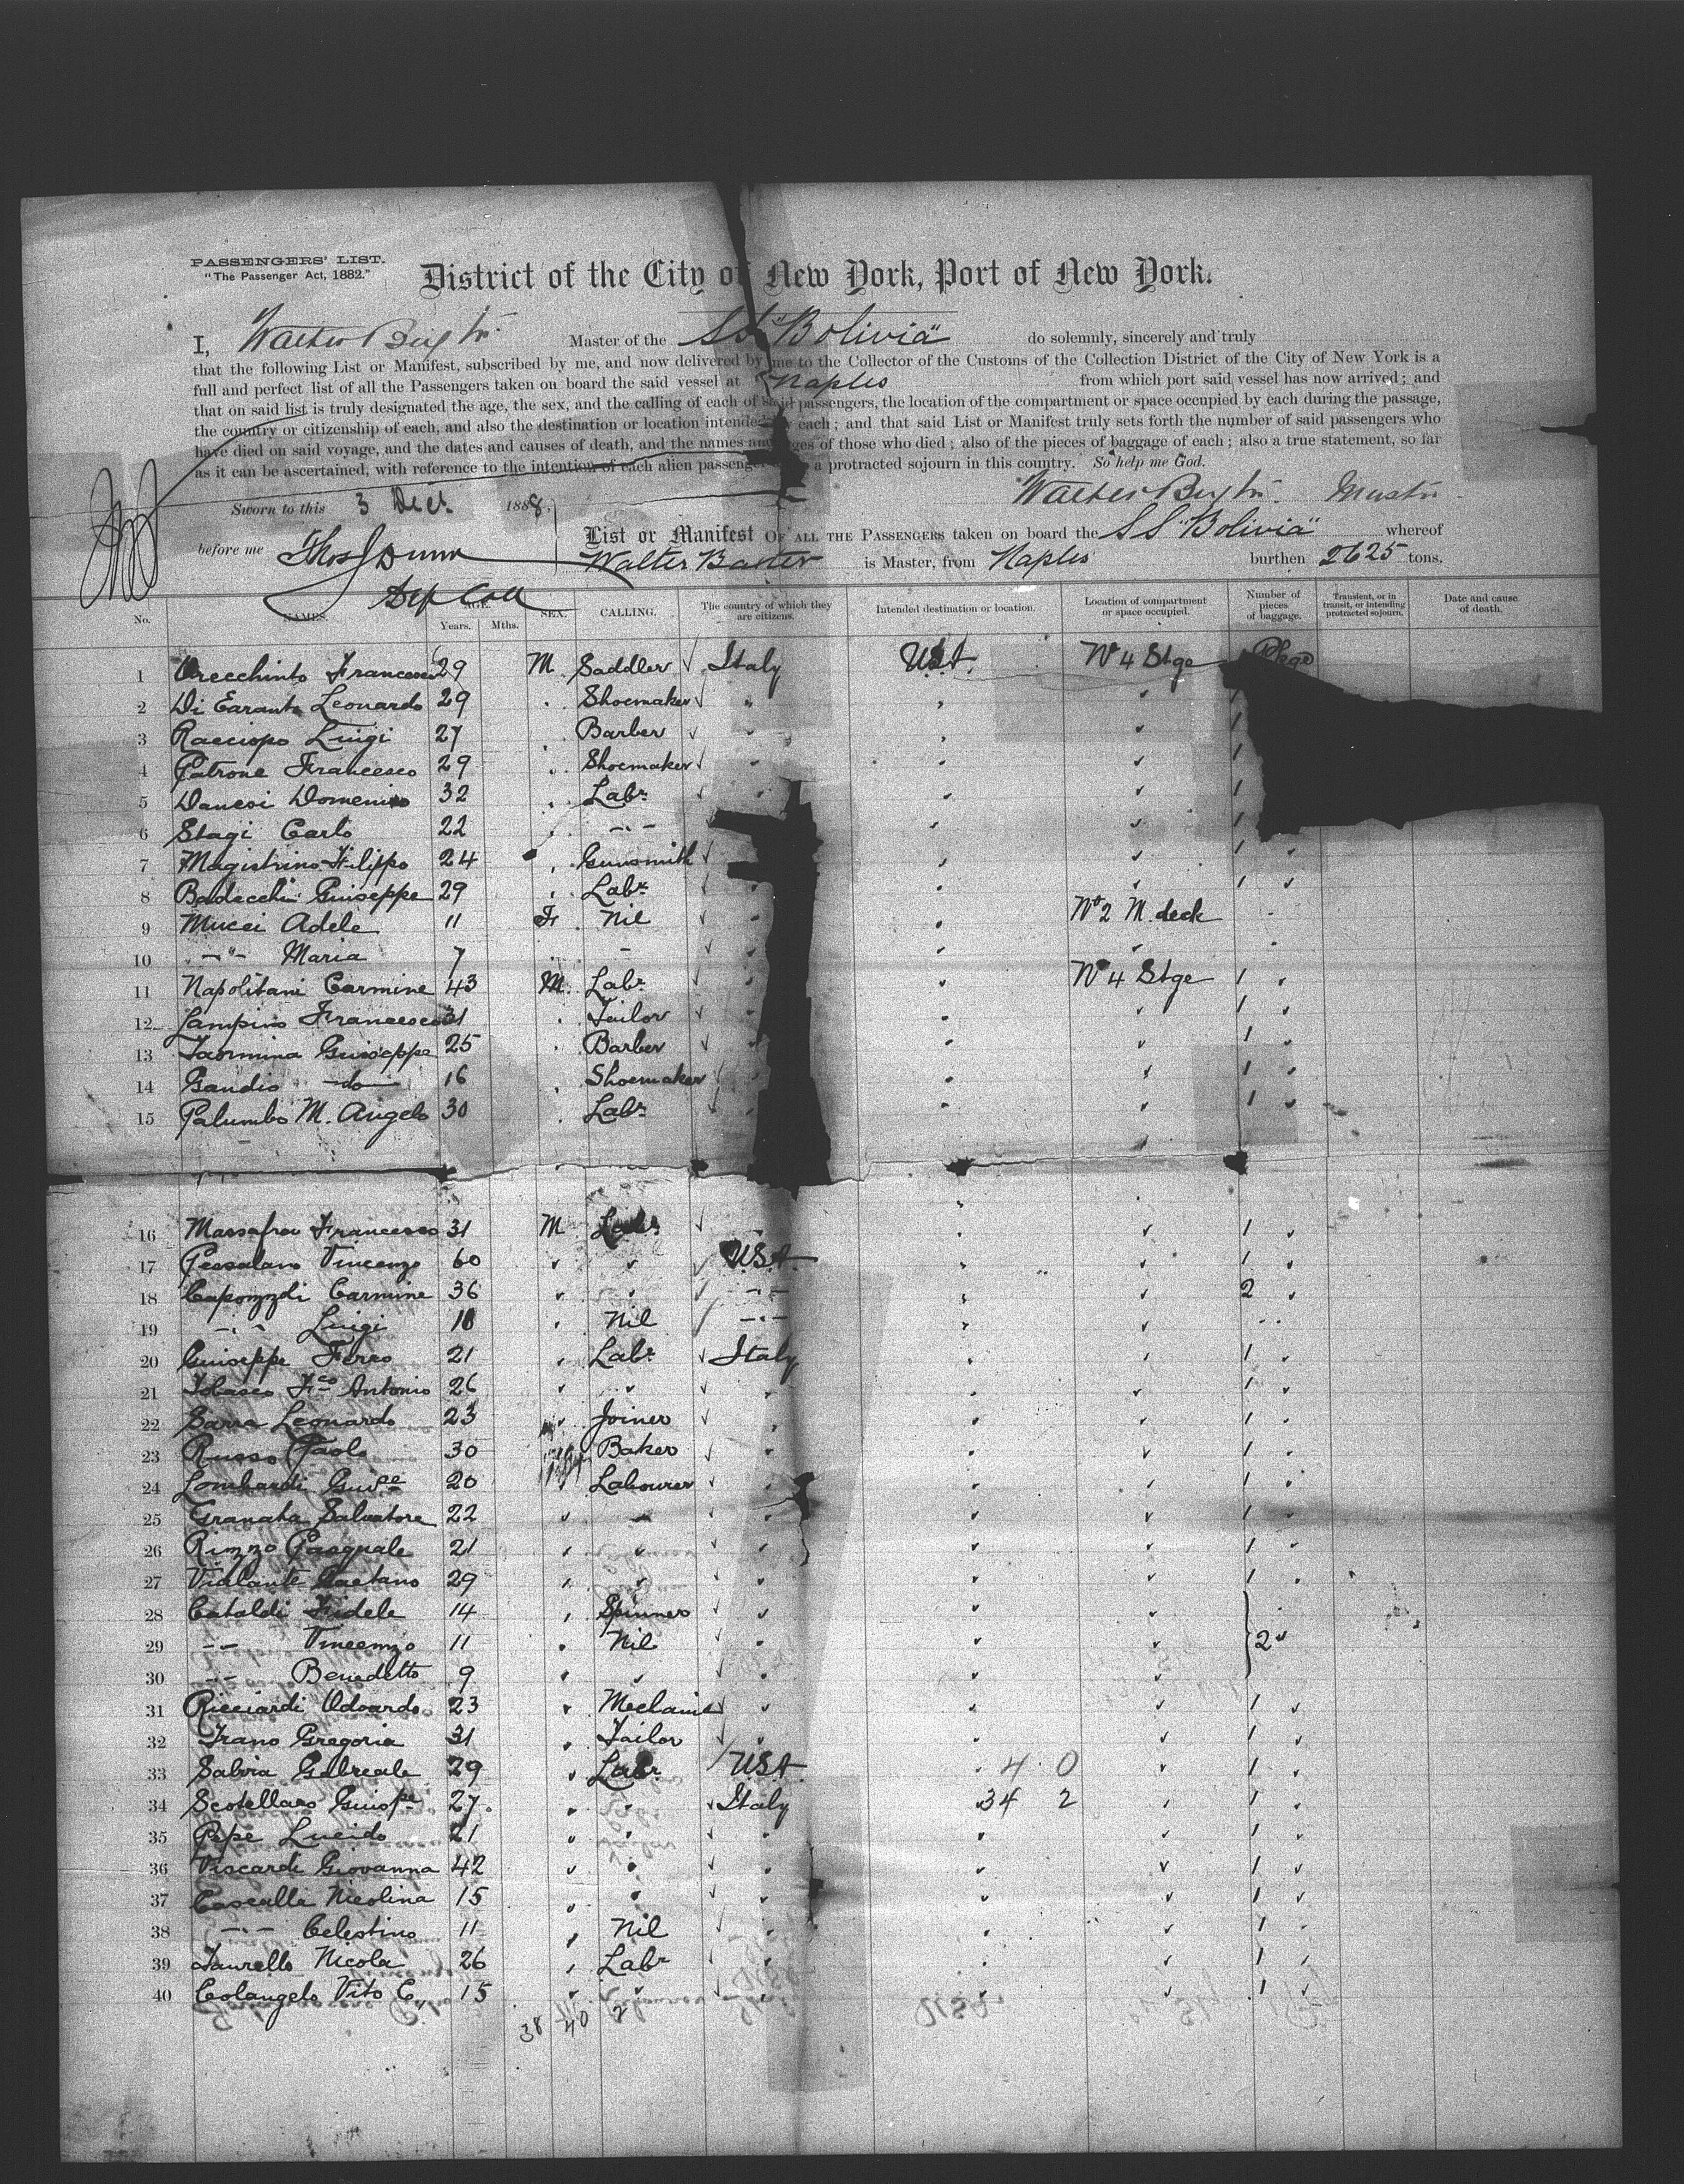 PASSENGERS' LIST.
"The Passenger Act, 1882."
District of the City of New York, Port of New York.
I, Walter Master of the SS "Bolivia" do solemnly, sincerely and truly
that the following List or Manifest, subscribed by me, and now delivered by me to the Collector of the Customs of the Collection District of the City of New York is a
full and perfect list of all the Passengers taken on board the said vessel at Naples from which port said vessel has now arrived; and
that on said list is truly designated the age, the sex, and the calling of each of said passengers, the location of the compartment or space occupied by each during the passage,
the country or citizenship of each, and also the destination or location intended each; and that said List or Manifest truly sets forth the number of said passengers who
have died on said voyage, and the dates and causes of death, and the names and ages of those who died; also of the pieces of baggage of each; also a true statement, so far
as it can be ascertained, with reference to the intention of each alien passenger a protracted sojourn in this country. So help me God.
Walter Master
Sworn to this 3 Dec. 1888,
List or Manifest OF ALL THE PASSENGERS taken on board the SS "Bolivia" whereof
before me Thos J Dunn Walter Baxter is Master, from Naples burthen 2625 tons.
Dep Coll
No. NAMES. AGE. Years. Mths. SEX. CALLING. The country of which they are citizens. Intended destination or location. Location of compartment or space occupied. Number of pieces of baggage. Transient, or in transit, or intending protracted sojourn. Date and cause of death.
1 Orecchinto Francesco 29 M. Saddler Italy USA. No 4 Stge
2 Di Leonardo 29 Shoemaker " 1
3 Racciopo Luigi 27 Barber 1
4 Patrone Francesco 29 Shoemaker 1
5 Danesi Domenico 32 Labr 1
6 Stagi Carlo 22 -"- 1
7 Magistrino Filippo 24 Gunsmith 1
8 Badacchi Guiseppe 29 Labr 1
9 Mucci Adele 11 F. Nil No 2 M. deck
10 -"- Maria 7 -
11 Napolitani Carmine 43 M. Labr No 4 Stge 1
12 Lampino Francesco 31 Tailor 1
13 Taormina Guiseppe 25 Barber 1
14 Gandio -do- 16 Shoemaker 1
15 Palumbo M. Angelo 30 Labr 1
16 Massafra Francesco 31 M Labr 1
17 Vincenzo 60 " USA. 1
18 Capozzoli Carmine 36 " -"- 2
19 -"- Luigi 10 Nil -"-
20 Guiseppe Ferro 21 Labr Italy 1
21 Tobasco Fco Antonio 26 " 1
22 Sarra Leonardo 23 Joiner 1
23 Russo Paolo 30 Baker 1
24 Lombardi Guise 20 Labourer 1
25 Granata Salvatore 22 " 1
26 Rizzo Pasquale 21 " 1
27 Vialante Gaetano 29 " 1
28 Cataldi Fidele 14 Spinner
29 -"- Vincenzo 11 Nil 2
30 -"- Benedetto 9 "
31 Ricciardi Odoardo 23 Mechanic 1
32 Trano Gregoria 31 Tailor 1
33 Sabia Gabreale 29 Labr USA 4 0 1
34 Scotellaro Guispe 27 " Italy 34 2 1
35 Pepe Lucido 21 " 1
36 Viscardi Giovanna 42 " 1
37 Cascalla Nicolina 15 " 1
38 -"- Celestino 11 Nil 1
39 Taurello Nicola 26 Labr 1
40 Colangelo Vito C. 15 " 1
38 40 2